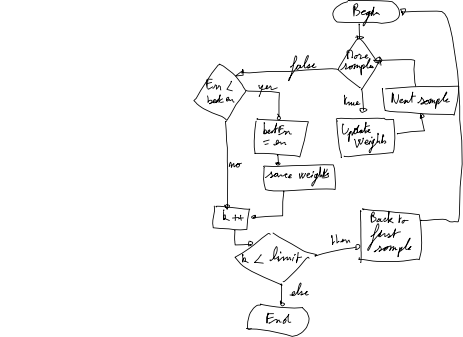 Begin
More
sample
false
true
Next sample
Update
Weights
En <
best en
yes
bestEn
= en
save weights
no
k ++
k < limit
then
Back to
first
sample
else
End